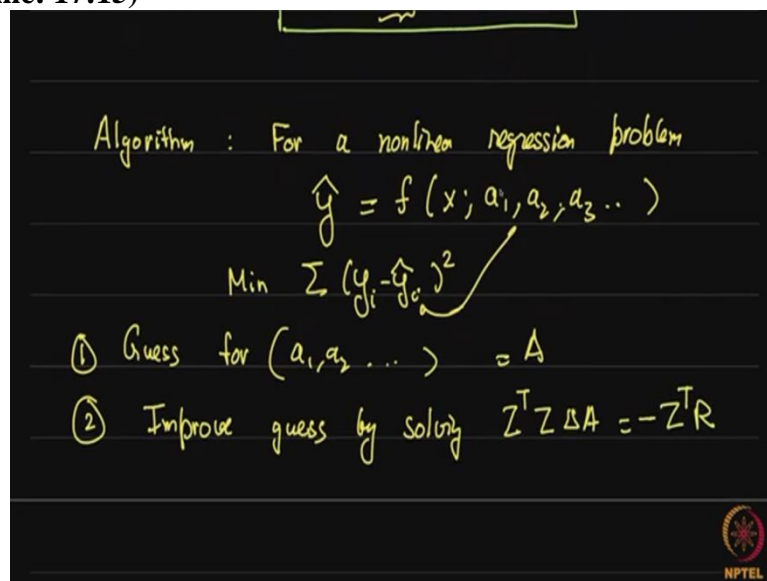 17.15)
Algorithm : For a nonlinea regression problem
ŷ = f (x; a₁, a₂, a₃ .. )
Min Σ (yᵢ - ŷᵢ)²
① Guess for (a₁, a₂ ... ) = A
② Improve guess by solvig ZᵀZ ΔA = -ZᵀR
NPTEL